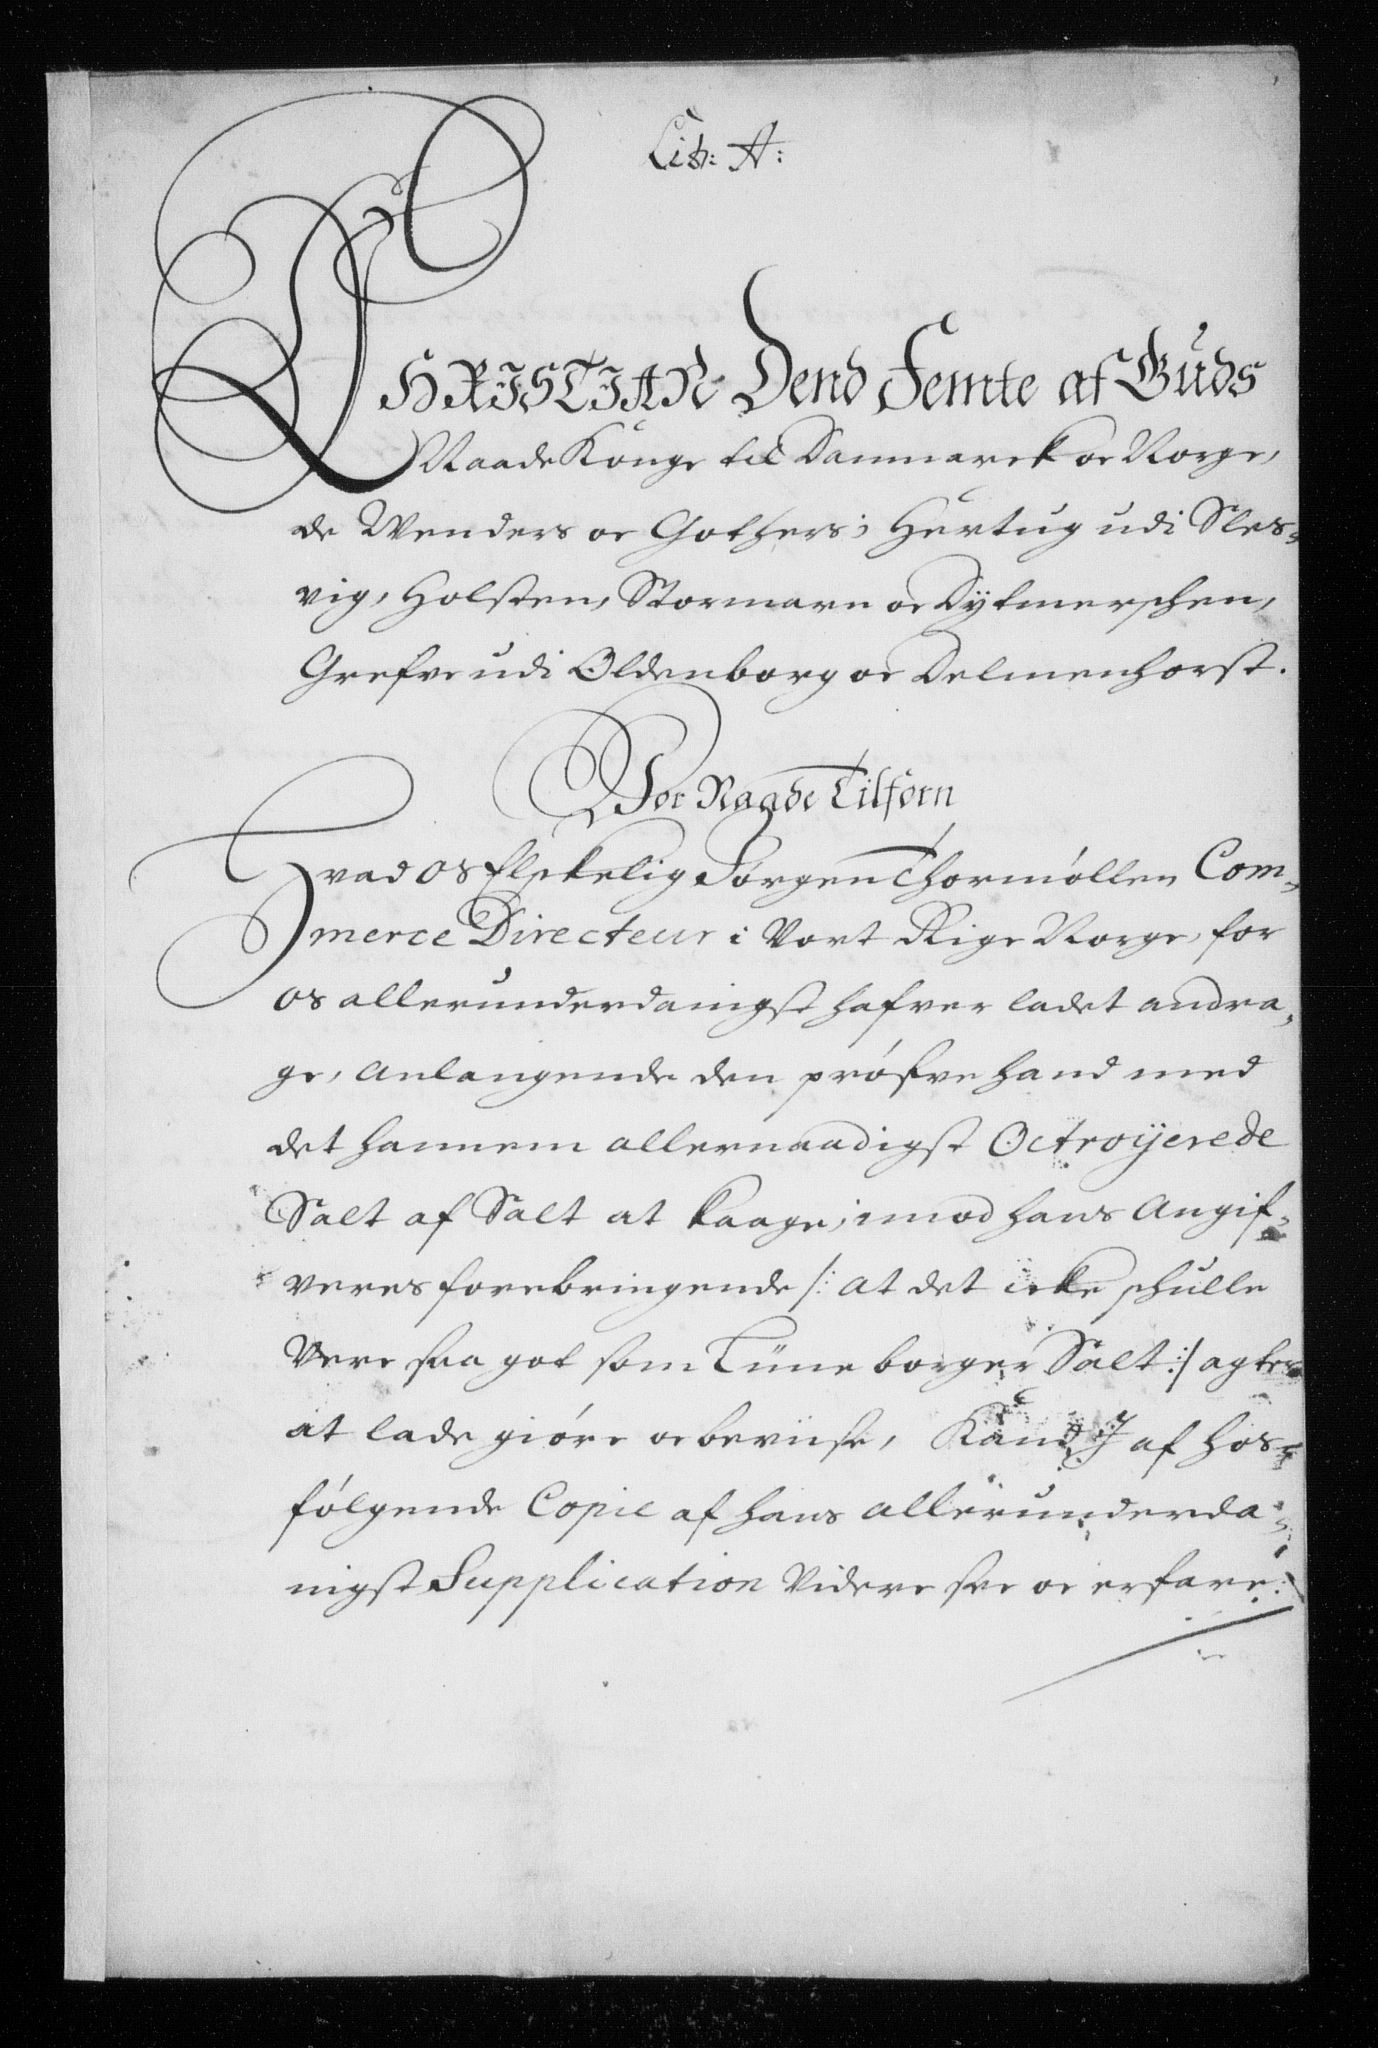 Lit: A:
CHRISTIAN Dend Femte af Guds
Naade Konge til Danmarck oc Norge,
de Wenders oc Gothers, Hertug udi Sles-
vig, Holsten, Stormarn oc Dytmerschen,
Grefve udi Oldenborg oc Delmenhorst.
Vor Naade Tilforn
Hvad os Elskelig Jørgen Thormøllen Com-
merce Directeur i Vort Rige Norge, for
os allerunderdanigst hafver ladet andra-
ge, anlangende den prøfve hand med
det hannem allernaadigst Octroijerede
Salt af Salt at kaage, imod hans Angif-
veres forebringende /: at det icke schulle
Vere saa got som Lüneborger Salt :/ agter
at lade giøre oc beviise, Kand I af hos-
følgende Copie af hans allerunderda-
nigst Supplication Videre see oc erfare.